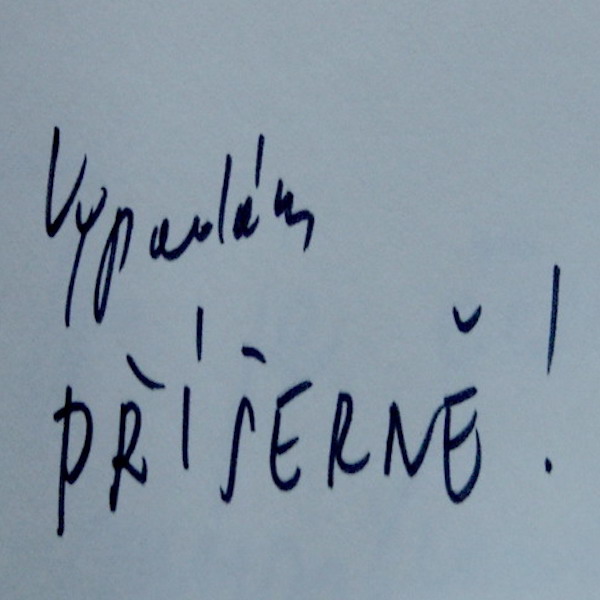 Vypadám
PŘÍŠERNĚ!